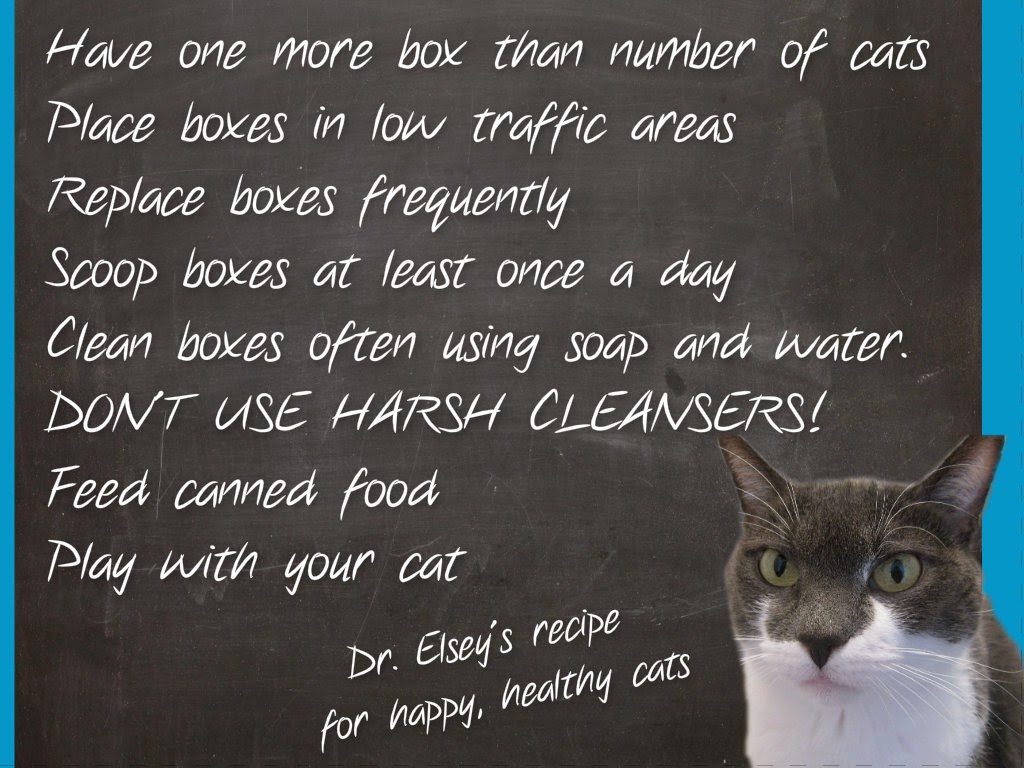 Have one more box than number of cats
Place boxes in low traffic areas
Replace boxes frequently
Scoop boxes at least once a day
Clean boxes often using soap and water.
DON'T USE HARSH CLEANSERS!
Feed canned food
Play with your cat
Dr. Elsey's recipe
for happy, healthy cats